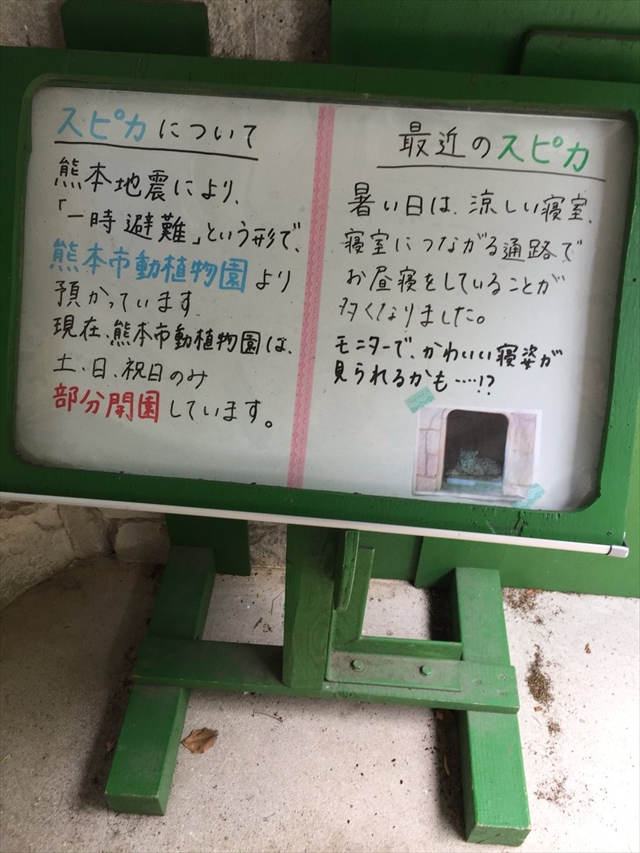 スピカについて
熊本地震により、
「一時避難」という形で、
熊本市動植物園より
預かっています。
現在、熊本市動植物園は、
土、日、祝日のみ
部分開園しています。
最近のスピカ
暑い日は、涼しい寝室、
寝室につながる通路で
お昼寝をしていることが
多くなりました。
モニターで、かわいい寝姿が
見られるかも……!?